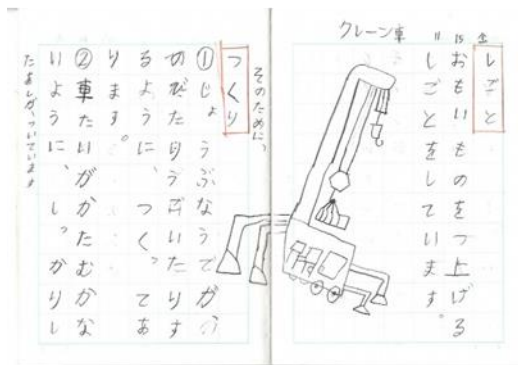 クレーン車
しごと
おもいものをつ上げる
しごとをしています。
そのために、
つくり
①じょうぶなうでが、
のびたりうごいたりす
るように、つくってあ
ります。
②車たいがかたむかな
いように、しっかりし
たあしが、ついています